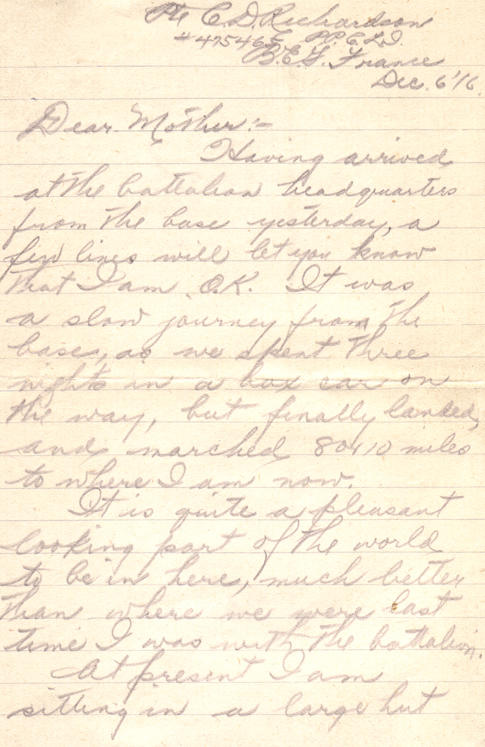 Pte C. D. Richardson
# 475465 P.P.C.L.I.
B.E.F. France
Dec. 6'16.
Dear Mother:-
Having arrived
at the battalion headquarters
from the base yesterday, a
few lines will let you know
that I am O.K. It was
a slow journey from the
base, as we spent three
nights in a box car on
the way, but finally landed,
and marched 8 or 10 miles
to where I am now.
It is quite a pleasant
looking part of the world
to be in here, much better
than where we were last
time I was with the battalion.
At present I am
sitting in a large hut